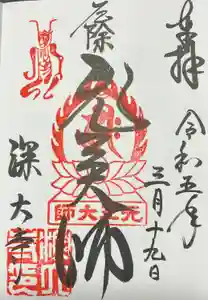 奉拝
令和五年
三月十九日
元三大師
元三大師
深大寺